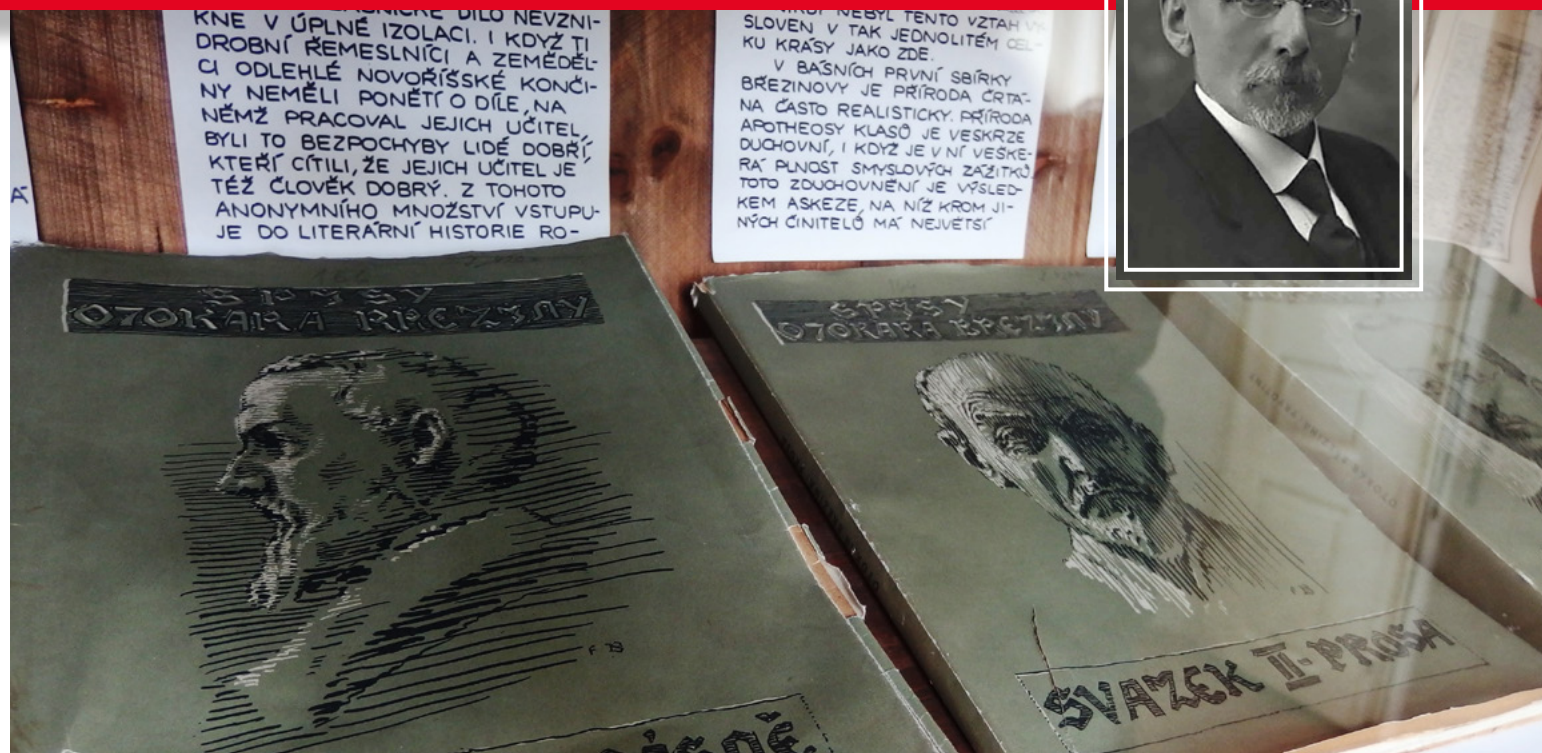 DÍLO NEVZNI-
KNE V ÚPLNÉ IZOLACI. I KDYŽ TI
DROBNÍ ŘEMESLNÍCI A ZEMĚDĚL-
CI ODLEHLÉ NOVOŘÍŠSKÉ KONČI-
NY NEMĚLI PONĚTÍ O DÍLE, NA
NĚMŽ PRACOVAL JEJICH UČITEL,
BYLI TO BEZPOCHYBY LIDÉ DOBŘÍ,
KTEŘÍ CÍTILI, ŽE JEJICH UČITEL JE
TÉŽ ČLOVĚK DOBRÝ. Z TOHOTO
ANONYMNÍHO MNOŽSTVÍ VSTUPU-
JE DO LITERÁRNÍ HISTORIE RO-
NEBYL TENTO VZTAH VY-
SLOVEN V TAK JEDNOLITÉM CEL-
KU KRÁSY JAKO ZDE.
V BÁSNÍCH PRVNÍ SBÍRKY
BŘEZINOVY JE PŘÍRODA ČRTÁ-
NA ČASTO REALISTICKY. PŘÍRODA
APOTHEOSY KLASŮ JE VESKRZE
DUCHOVNÍ, I KDYŽ JE V NÍ VEŠKE-
RÁ PLNOST SMYSLOVÝCH ZÁŽITKŮ.
TOTO ZDUCHOVNĚNÍ JE VÝSLED-
KEM ASKEZE, NA NÍŽ KROM JI-
NÝCH ČINITELŮ MÁ NEJVĚTŠÍ
SPISY
OTOKARA BŘEZINY
SPISY
OTOKARA BŘEZINY
SVAZEK II · PROSA